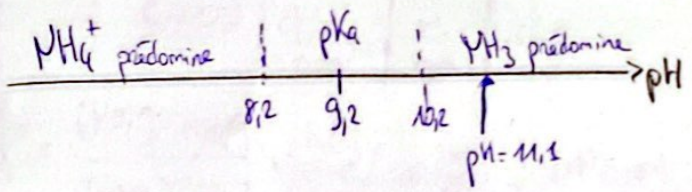 NH4+ prédomine pKa NH3 prédomine
pH
8,2 9,2 10,2
pH=11,1